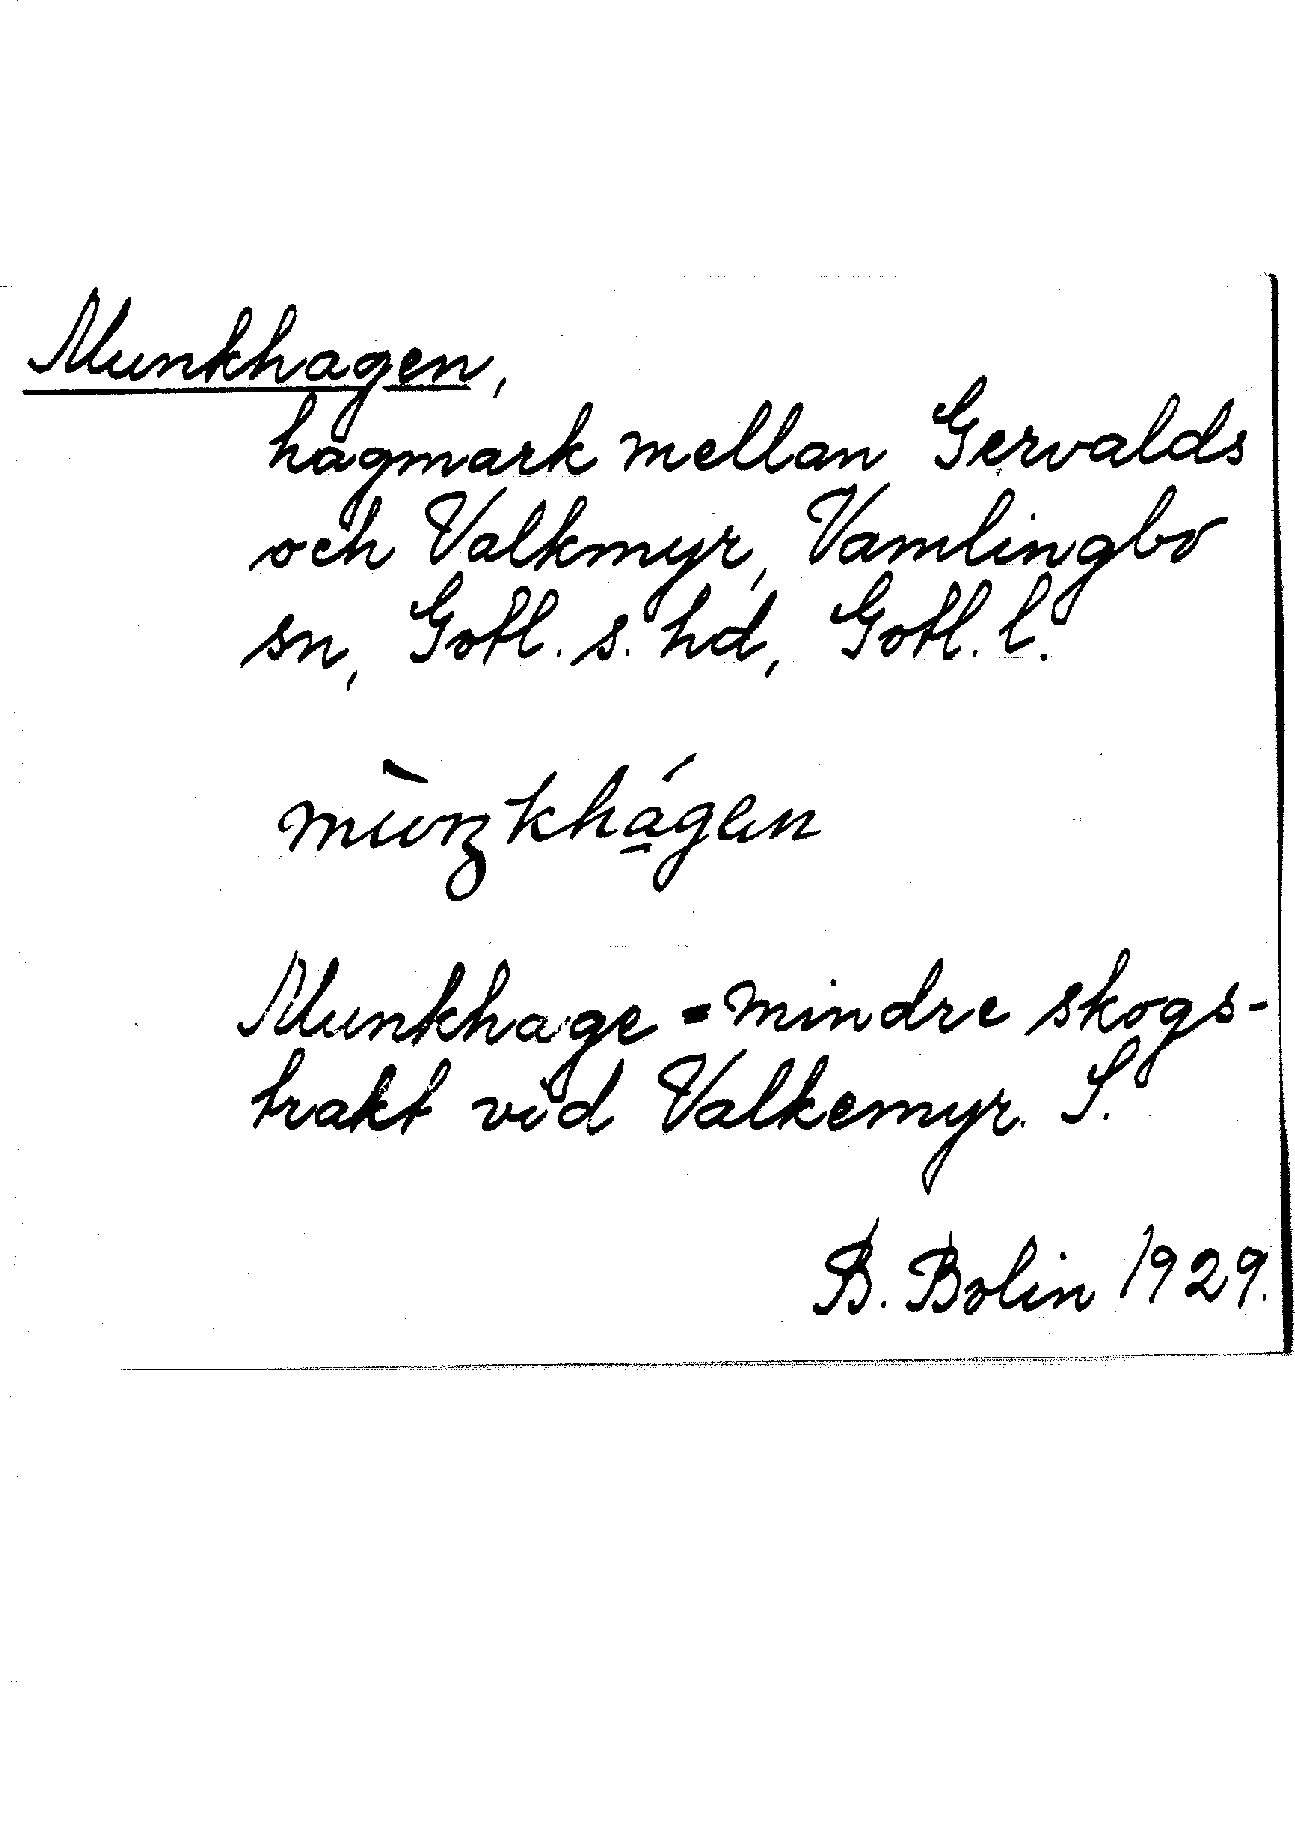 Munkhagen,
hagmark mellan Gervalds
och Valkmyr, Vamlingbo
sn, Gotl. s. hd, Gotl. l.
mùŋkhá̱gen
Munkhage = mindre skogs-
trakt vid Valkemyr. S.
B. Bolin 1929.